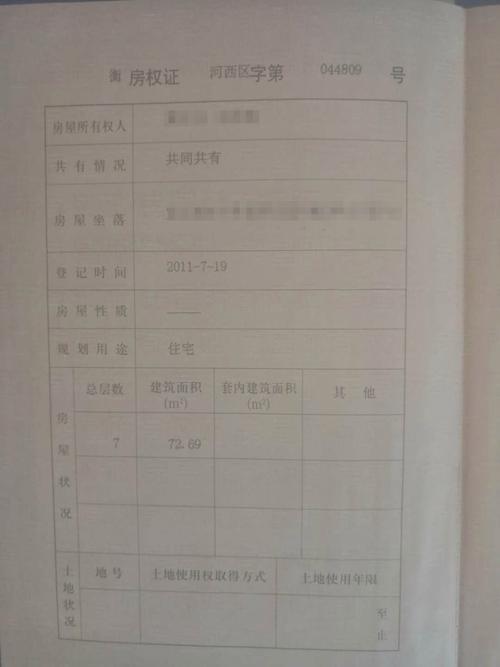 衡房权证 河西区字第 044809 号
房屋所有权人
共有情况 共同共有
房屋坐落
登记时间 2011-7-19
房屋性质 ——
规划用途 住宅
房屋状况
总层数 建筑面积(m²) 套内建筑面积(m²) 其他
7 72.69
土地状况
地号 土地使用权取得方式 土地使用年限
至
止